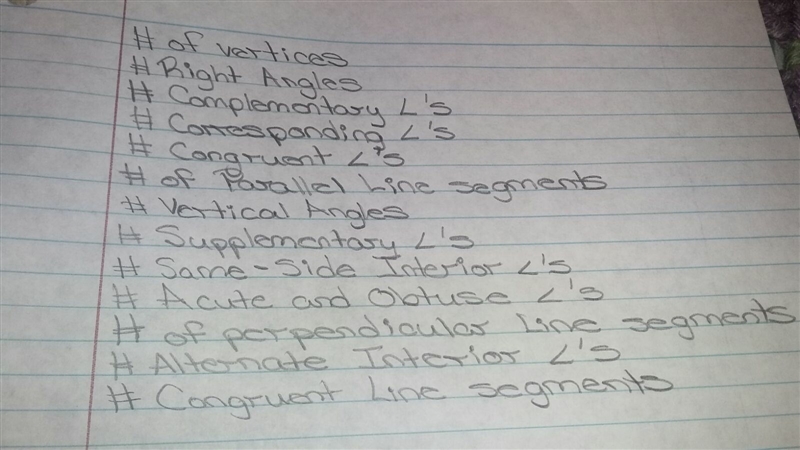 # of vertices
# Right Angles
# Complementary ∠'s
# Corresponding ∠'s
# Congruent ∠'s
# of Parallel Line segments
# Vertical Angles
# Supplementary ∠'s
# Same-Side Interior ∠'s
# Acute and Obtuse ∠'s
# of perpendicular Line segments
# Alternate Interior ∠'s
# Congruent Line segments